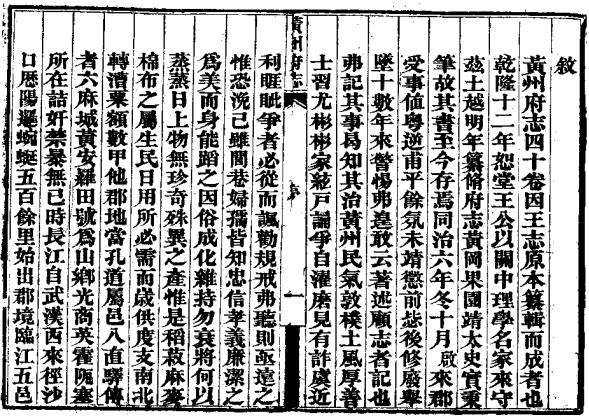 敘
黃州府志四十卷因王志原本纂輯而成者也
乾隆十二年恕堂王公以關中理學名家來守
茲土越明年纂脩府志黃岡果園靖太史實秉
筆故其書至今存焉同治六年冬十月啟來郡
受事値粵逆甫平餘氛未靖懲前毖後修廢舉
墜十數年來警惕弗遑敢云著述顧志者記也
弗記其事曷知其治黃州民氣敦樸土風厚善
士習尤彬彬家絃戶誦爭自濯磨見有詐虞近
黃州府志
序
一
利睚眦爭者必從而諷勸規戒弗聽則亟遠之
惟恐浼己雖閭巷婦孺皆知忠信孝義廉潔之
爲美而身能蹈之因俗成化維持勿衰將何以
蒸蒸日上物無珍奇殊異之產惟是稻菽麻麥
棉布之屬生民日用所必需而歲供度支南北
轉漕粟額數甲他郡地當孔道屬邑八直驛傳
者六麻城黃安羅田號爲山鄉光商英霍阨塞
所在詰奸禁暴無已時長江自武漢西來徑沙
口歷陽邏蜿蜒五百餘里始出郡境臨江五邑